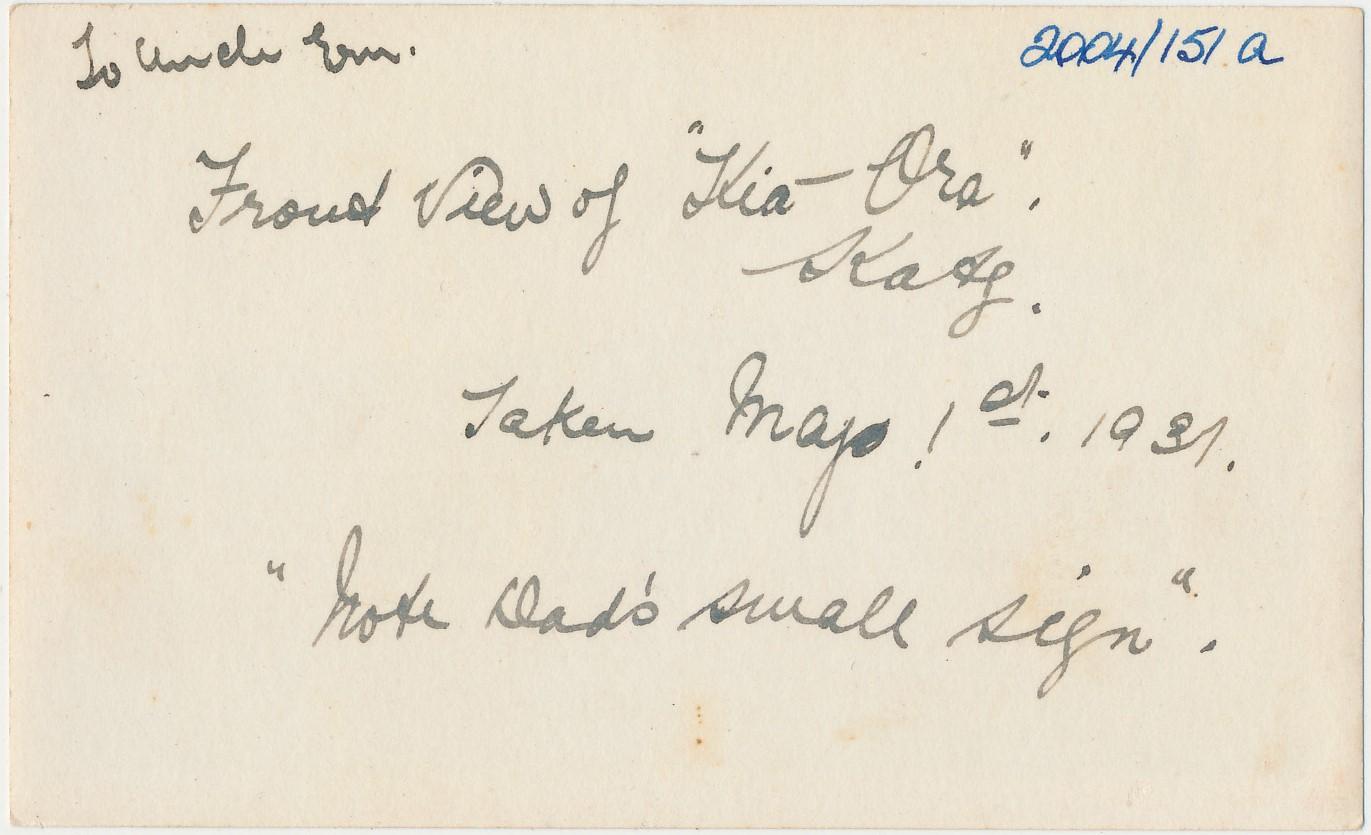 To Uncle Ern.
2004/151 a
Front View of "Kia-Ora".
Katg.
Taken May. 1st. 1931.
"Note Dad's small sign".